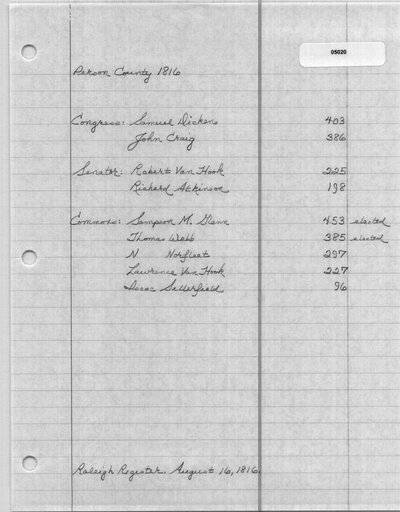 05020
Person County 1816
Congress: Samuel Dickens 403
John Craig 386
Senator: Robert Van Hook 225
Richard Atkinson 198
Commons: Sampson M. Glenn 453 elected
Thomas Webb 385 elected
N Norfleet 297
Lawrence Van Hook 227
Isaac Satterfield 96
Raleigh Register. August 16, 1816.